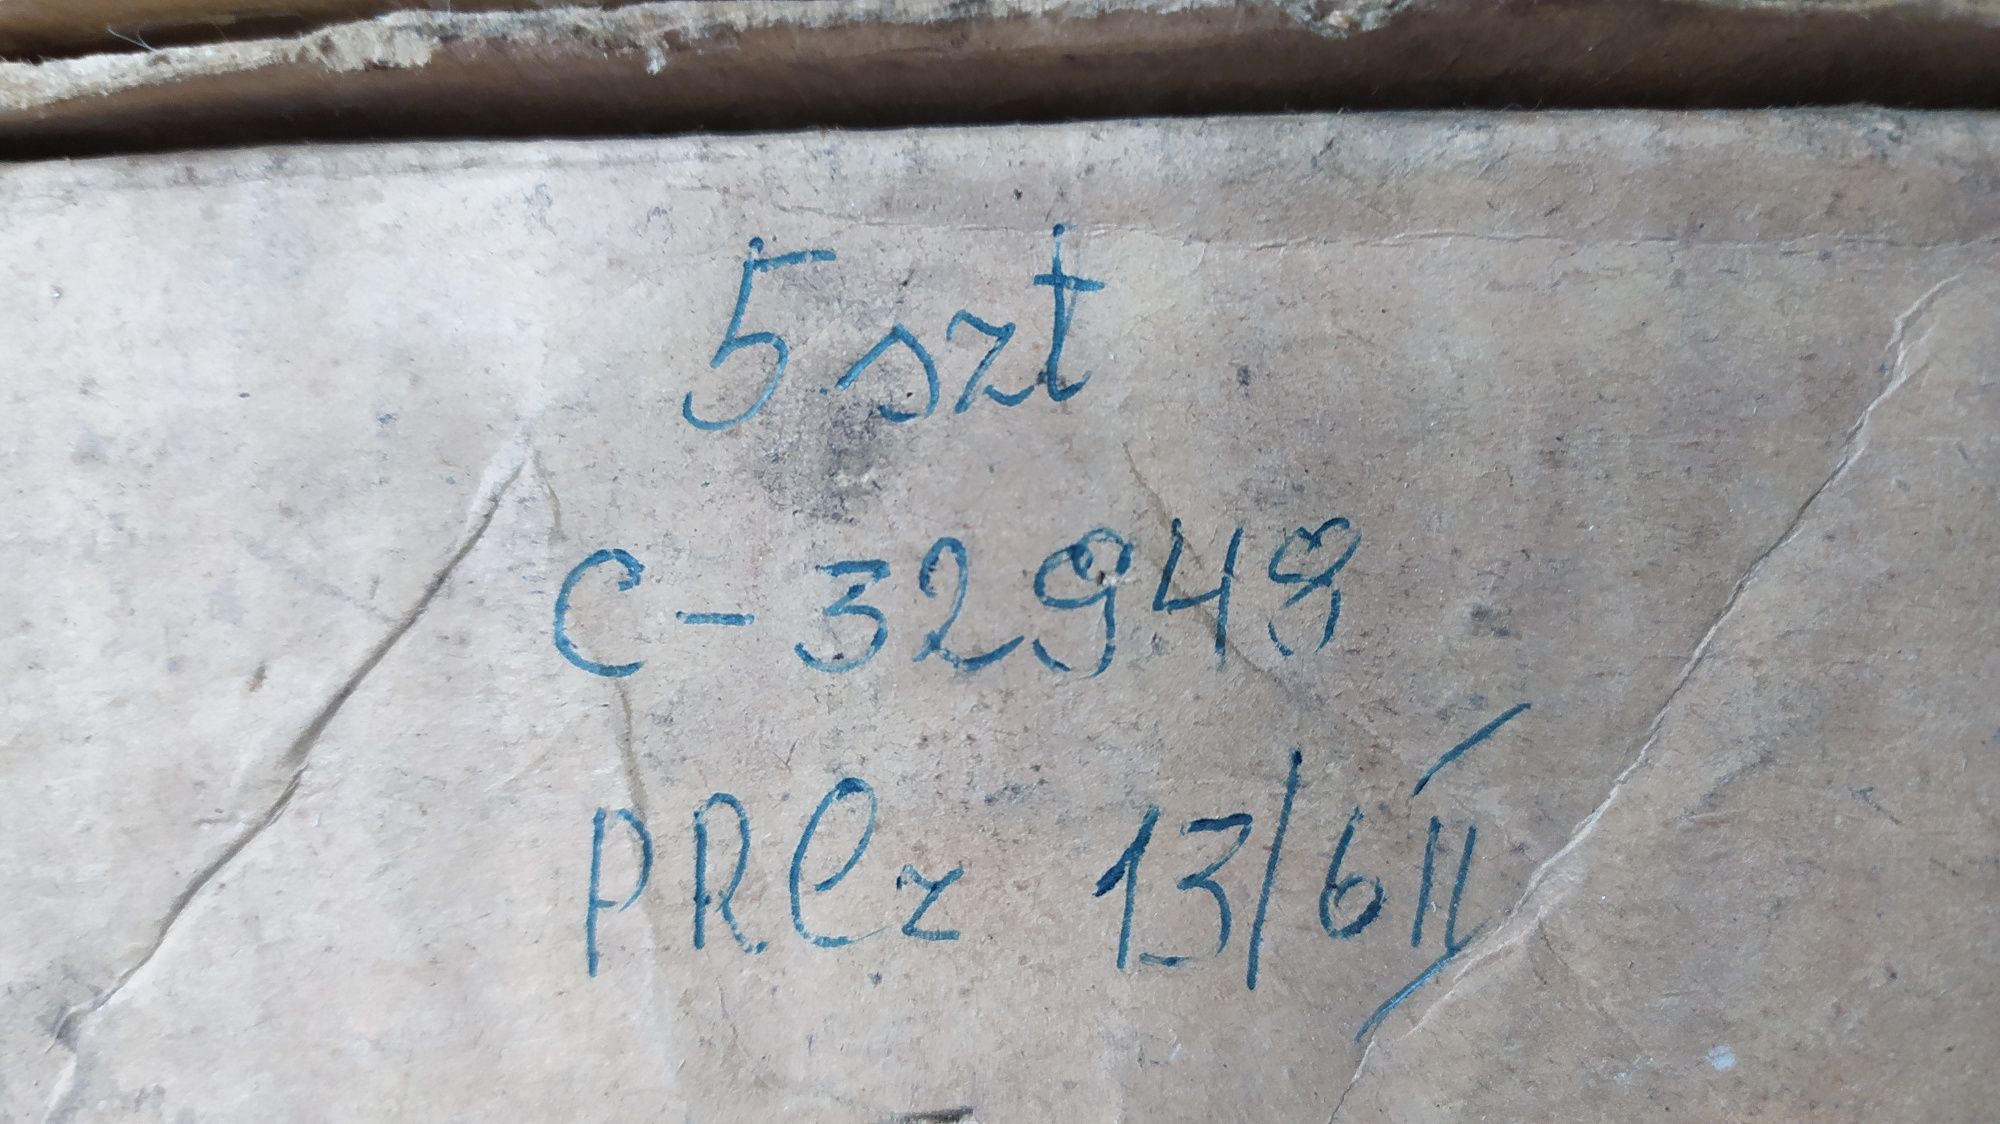 5 szt
C-32948
PRCz 13/6II